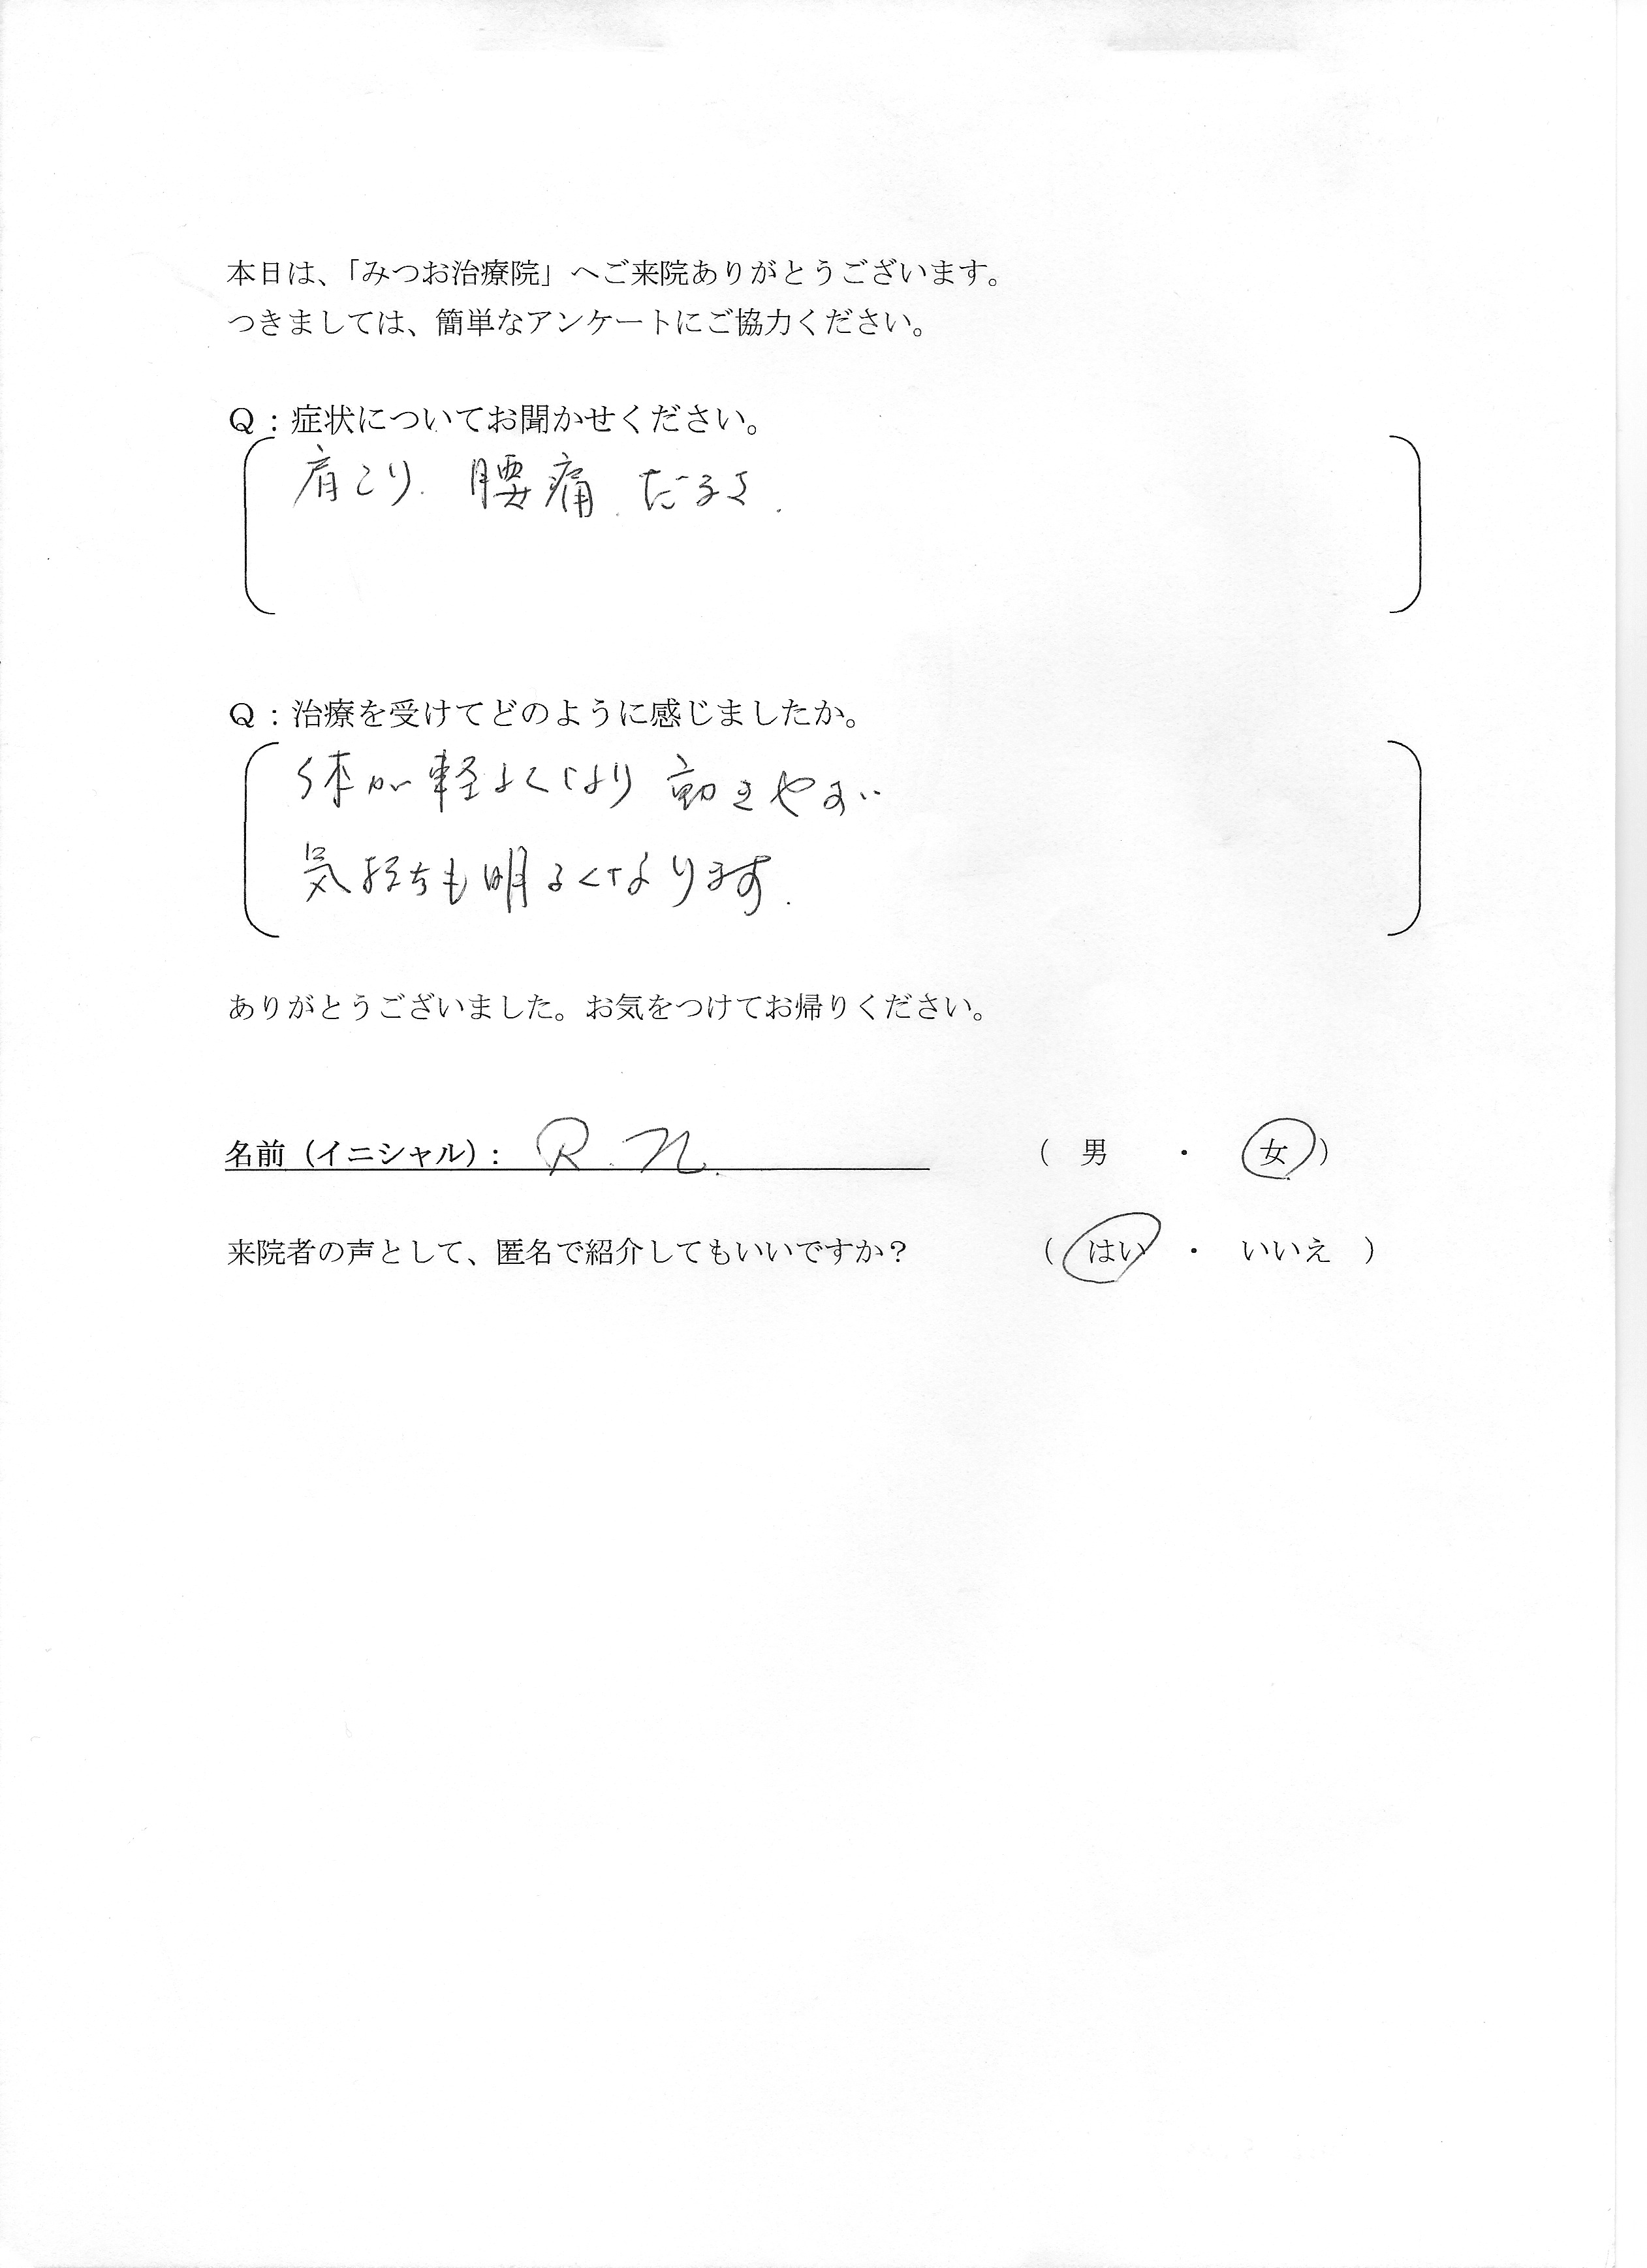 本日は、「みつお治療院」へご来院ありがとうございます。
つきましては、簡単なアンケートにご協力ください。
Q：症状についてお聞かせください。
肩こり. 腰痛. だるさ.
Q：治療を受けてどのように感じましたか。
体が軽よくなり 動きやすい
気持ちも明るくなります.
ありがとうございました。お気をつけてお帰りください。
名前（イニシャル）： R. n. （ 男 ・ 女 ）
来院者の声として、匿名で紹介してもいいですか？ （ はい ・ いいえ ）